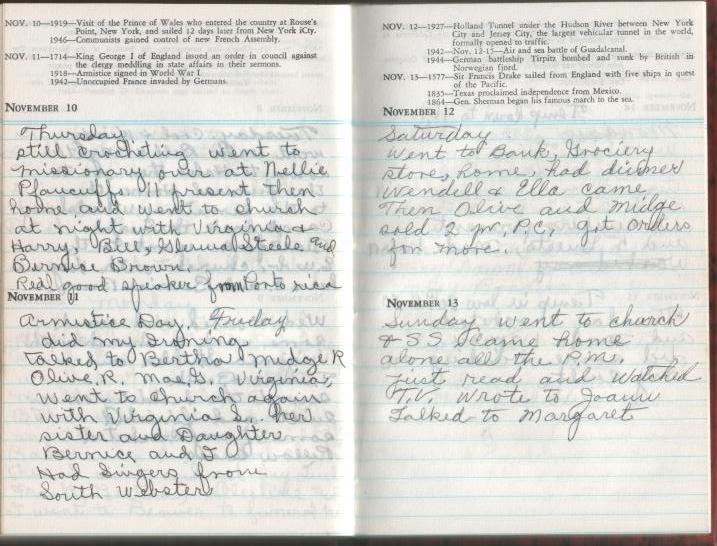 NOV. 10—1919—Visit of the Prince of Wales who entered the country at Rouse's
Point, New York, and sailed 12 days later from New York iCty.
1946—Communists gained control of new French Assembly.
NOV. 11—1714—King George I of England issued an order in council against
the clergy meddling in state affairs in their sermons.
1918—Armistice signed in World War I.
1942—Unoccupied France invaded by Germans.
NOVEMBER 10
Thursday
still crocheting went to
missionary over at Nellie
Plaucuffs 11 present then
home and went to church
at night with Virginia &
Harry, Bill, Glenna Steele and
Bernice Brown.
Real good speaker from Porto rica
NOVEMBER 11
Armistice Day. Friday
did my Ironing
talked to Bertha Midge R
Olive, R. Mae, G. Virginia,
went to church again
with Virginia S. her
sister and Daughter
Bernice and I
Had Singers from
South Webster
NOV. 12—1927—Holland Tunnel under the Hudson River between New York
City and Jersey City, the largest vehicular tunnel in the world,
formally opened to traffic.
1942—Nov. 12-15—Air and sea battle of Guadalcanal.
1944—German battleship Tirpitz bombed and sunk by British in
Norwegian fjord.
NOV. 13—1577—Sir Francis Drake sailed from England with five ships in quest
of the Pacific.
1835—Texas proclaimed independence from Mexico.
1864—Gen. Sherman began his famous march to the sea.
NOVEMBER 12
Saturday
went to Bank, Grociery
store, home, had dinner
Wendell & Ella came
Then Olive and Midge
sold 2 pr. P.C. got orders
for more.
NOVEMBER 13
Sunday went to church
& SS Came home
alone all the P.M.
just read and watched
T.V. wrote to Joann
Talked to Margaret